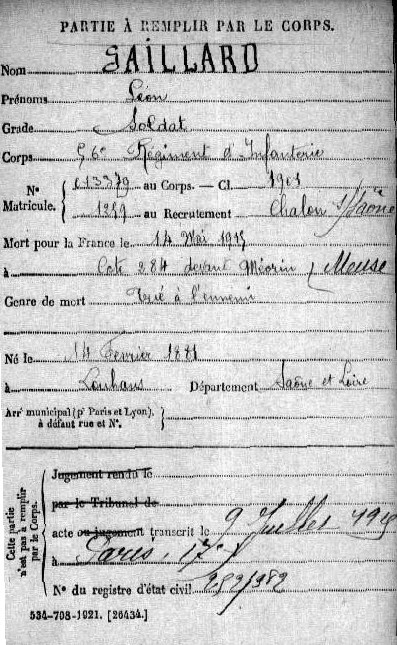 PARTIE À REMPLIR PAR LE CORPS.
Nom SAILLARD
Prénoms Léon
Grade Soldat
Corps 56e Régiment d'Infanterie
N° Matricule. { 013379 au Corps. — Cl. 1901
1289 au Recrutement Chalon s/Saône
Mort pour la France le 14 Mai 1915
à Cote 284 devant Méorin (Meuse
Genre de mort Tué à l'ennemi
Né le 14 Février 1881
à Louhans Département Saône et Loire
Arrt municipal (pr Paris et Lyon), à défaut rue et N°.
Cette partie n'est pas à remplir par le Corps.
Jugement rendu le
par le Tribunal de
acte ou jugement transcrit le 9 Juillet 1915
à Paris, 17e
N° du registre d'état civil 282/982
534-708-1921. [26434.]